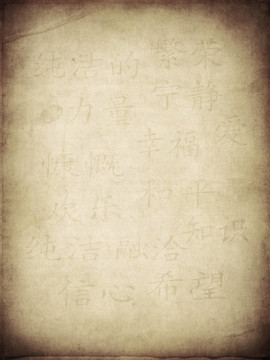 纯洁的
繁荣
宁静
力量
幸福
爱
慷慨
和平
欢乐
知识
纯洁
融洽
信心
希望